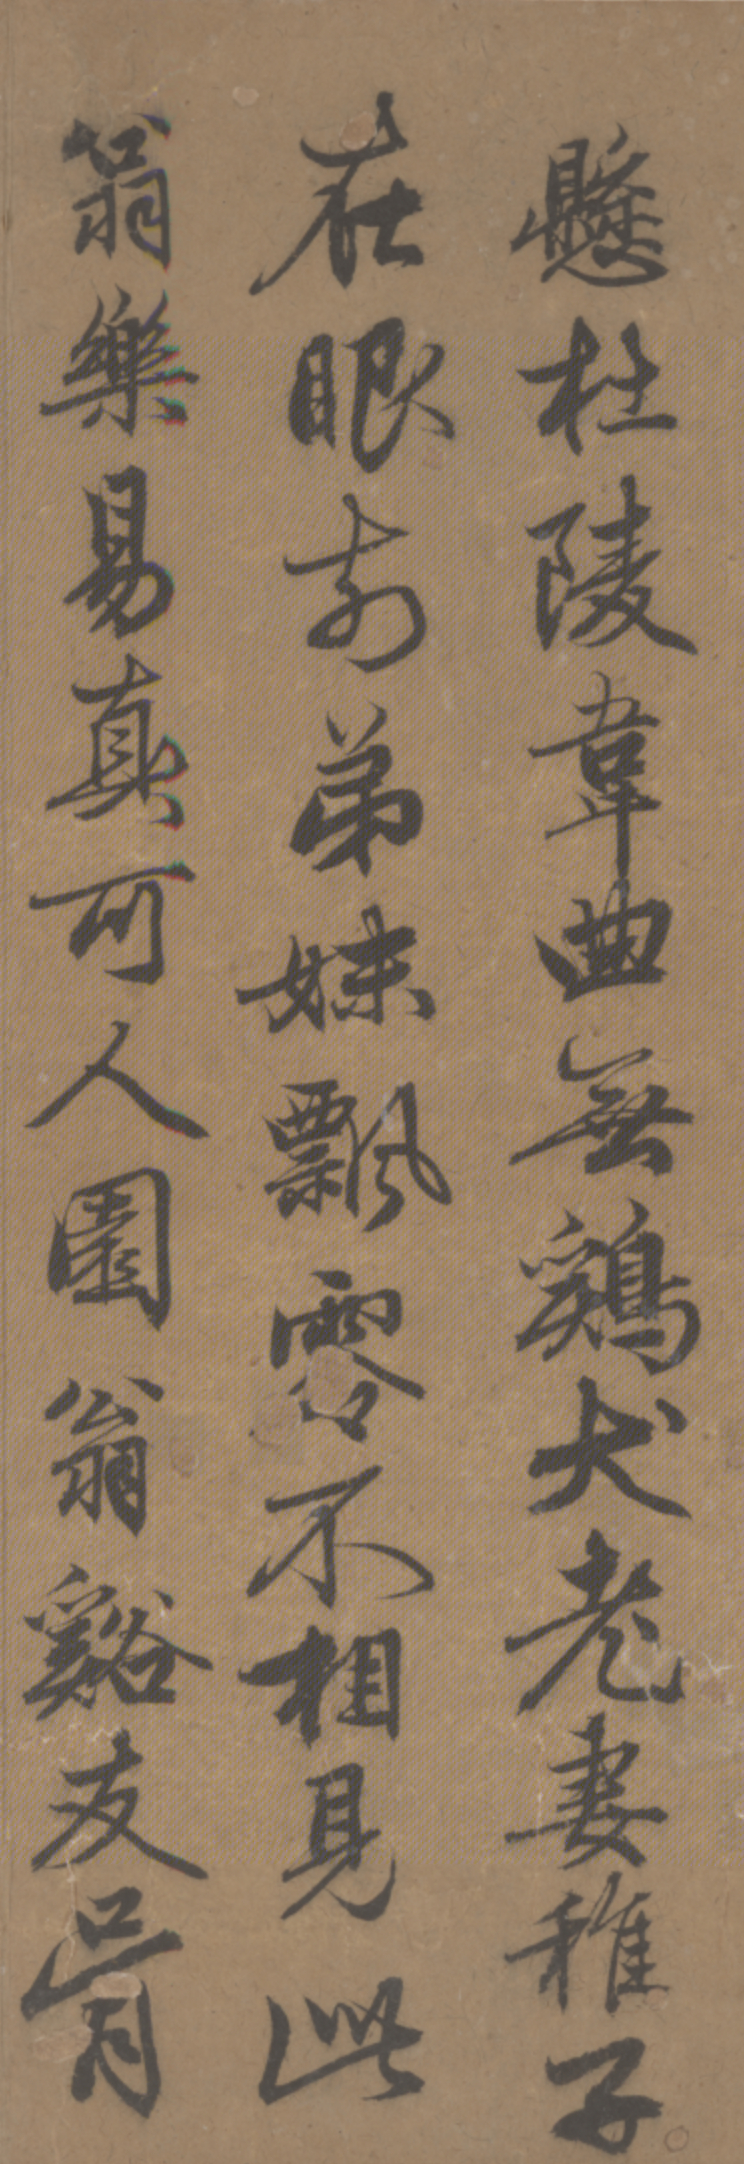 懸杜陵韋曲無鷄犬老妻稚子
在眼前弟妹飄零不相見此
翁樂易真可人園翁谿友肯